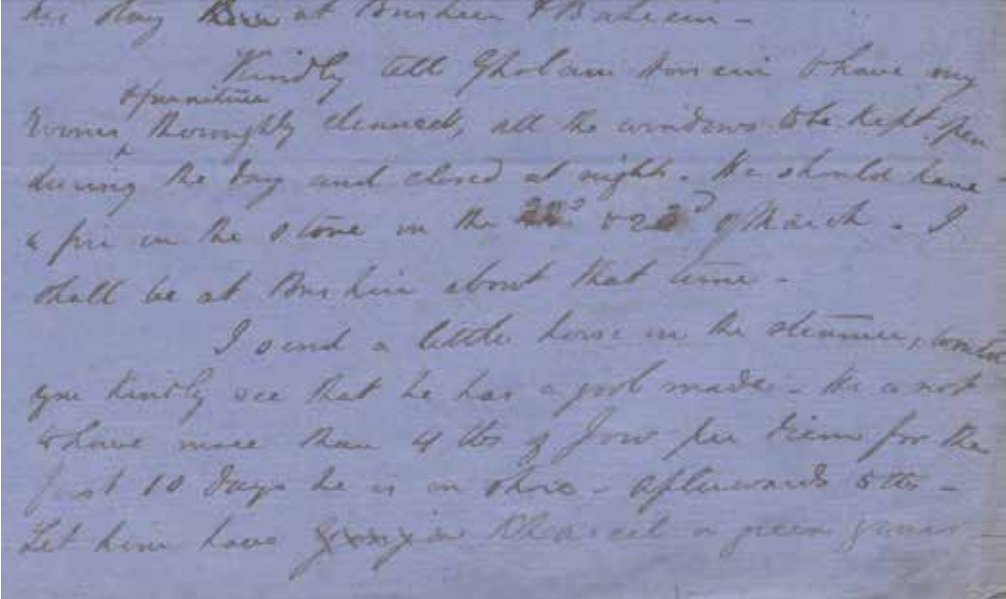 his stay there at Bushire & Bahrein -
Kindly tell Gholam Hoosein to have my
& furniture
rooms thoroughly cleaned, all the windows to be kept open
during the day and closed at night. He should have
a fire in the stove on the 22d & 23d of March. I
shall be at Bushire about that time -
I send a little horse in the steamer, would
you kindly see that he has a made - He is not
to have more than 4 lbs of Jow per diem for the
first 10 days he is on shore - afterwards 5 lbs -
Let him have or green grass